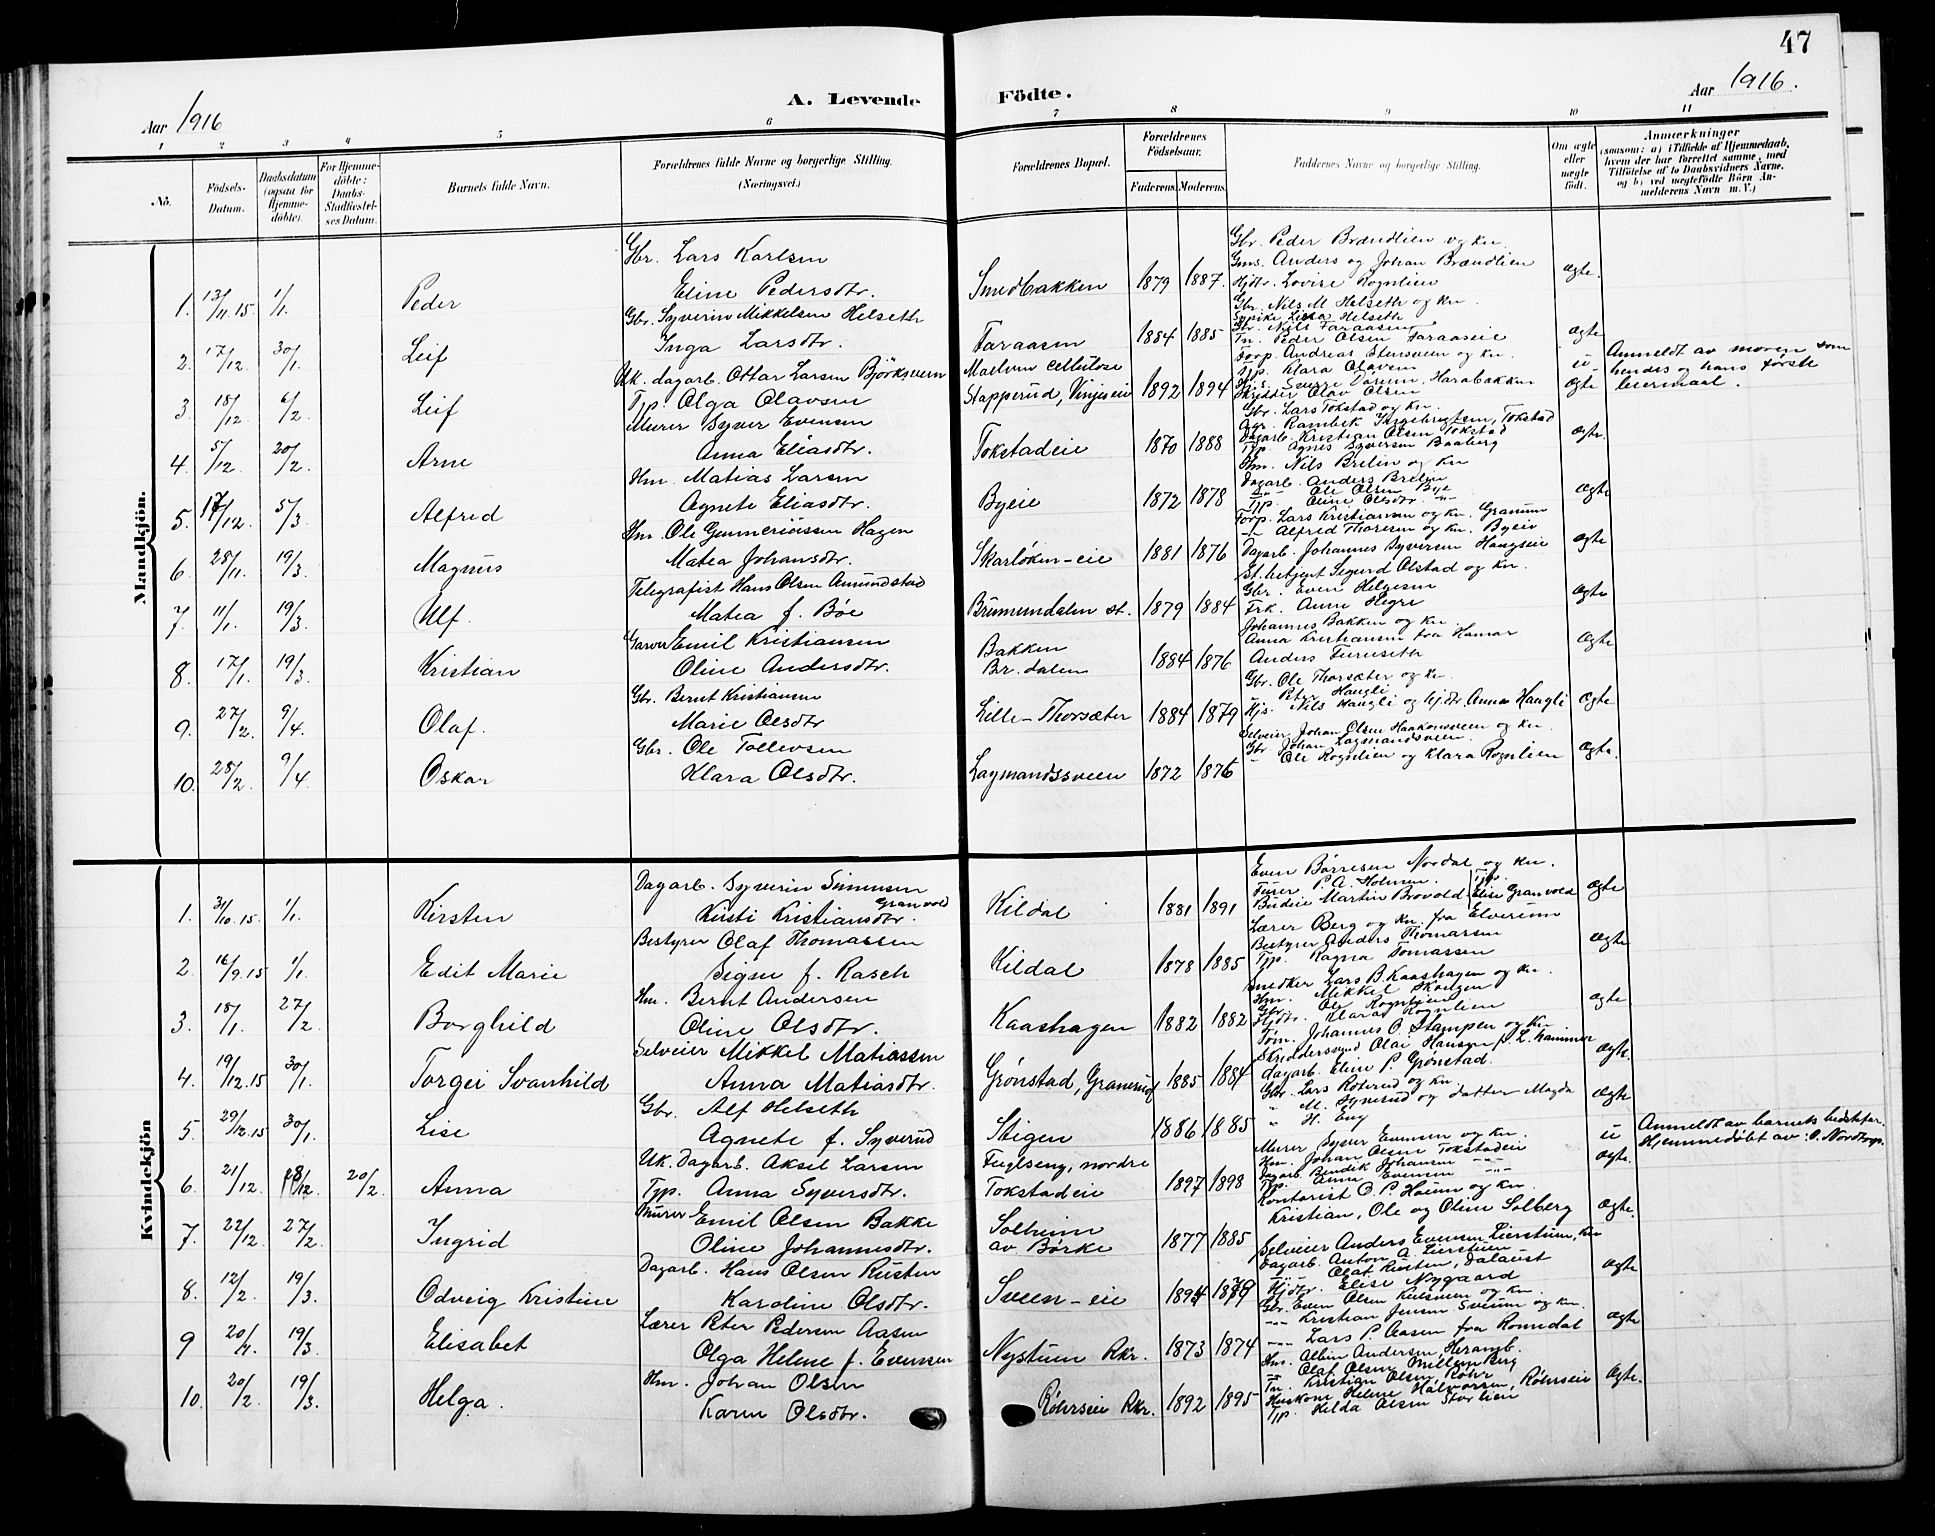 47
Aar 1916
A. Levende Födte.
Aar 1916.
1 2 3 4 5 6 7 8 9 10 11
No.
Födsels-Datum.
Daabsdatum (ogsaa for Hjemmedöbte).
For Hjemmedöbte: Daabs-Stadfæstelses Datum.
Barnets fulde Navn.
Forældrenes fulde Navne og borgerlige Stilling. (Næringsvei.)
Forældrenes Bopæl.
Forældrenes Födselsaar.
Faderens. Moderens.
Faddernes Navne og borgerlige Stilling.
Om ægte eller uægte födt.
Anmærkninger
(saasom: a) i Tilfælde af Hjemmedaab, hvem der har forrettet samme, med Tilföielse af to Daabsvidners Navne. og b) ved uægtefödte Börn Anmelderens Navn m. V.)
Mandkjön.
1. 13/11.15. 1/1. Peder
Gbr. Lars Karlsen
Eline Pedersdtr.
Smedbakken 1879 1887.
Gbr. Peder Brændlien og kn.
Gms. Anders og Johan Brændlien
Hjdtr. Lovise Rognlien
ægte.
2. 17/12. 30/1. Leif
Gbr. Syverin Mikkelsen Helseth
Inga Larsdtr.
Faraasen 1884 1885
Gbr. Nils M. Helseth og kn.
Gbr. Nils Faraasen
Tn. Peder Olsen Faraaseie
ægte
3 18/12 6/2. Leif
Uk. dagarb. Ottar Larsen Björksveen
Typ. Olga Olavsen
Maelum cellulose
Stapperud, Vinjeseie 1892 1894
Forp. Andreas Stensveen og kn.
Typ. Klara Olavsen
Skrædder Olav Olsen
u ægte
Anmeldt av moren som
hendes og hans første
leiermaal.
4. 5/12. 20/2. Arne
Murer Syver Evensen
Anna Eliasdtr.
Tokstadeie 1870 1888
Gbr. Lars Tokstad og kn.
Dagarb. Kristian Olsen Tokstad
Typ. Agnes Syversen Baaberg
ægte.
5. 17/12. 5/3. Alfred
Hm. Matias Larsen
Agnete Eliasdtr.
Byeie 1872 1878
Hm. Nils Brelin og kn
Dagarb. Anders Brelin
" Ole Olsen Bye
Typ. Oline Olsdtr. "
ægte
6 28/11. 19/3. Magnus
Hm. Ole Gunneriussen Hagen
Matea Johansdtr.
Skarløken-eie 1881 1876
Forp. Lars Kristiansen og kn. Granum
" Alfred Thoresen og kn. Byeie
Dagarb. Johannes Syversen Haugseie
ægte
7. 11/1. 19/3. Ulf.
Telegrafist Hans Olsen Amundstad
Matea f. Bøe
Brumundalen st. 1879 1884
St. betjent Sigurd Olstad og kn.
Gbr. Even Helgesen
Frk. Anne Hegre
ægte
8. 17/1. 19/3. Kristian
Garver Emil Kristiansen
Oline Andersdtr.
Bakken
Br. dalen 1884 1876
Johannes Bakken og kn.
Anna Kristiansen fra Hamar
Anders Furuseth
ægte
9. 27/2. 9/4. Olaf.
Gbr. Bernt Kristiansen
Marie Olsdtr
Lille-Thorsæter 1884 1879
Gbr. Ole Thorsæter og kn.
Peter Haugli
Hjs. Nils Haugli og hj.dtr. Anna Haugli
ægte
10. 28/2. 9/4 Oskar
Gbr. Ole Tollevsen
Klara Olsdtr.
Lagmandssveen 1872 1876
Selveier Johan Olsen Haakonsveen og kn.
Gbr Johan Lagmandsveen.
" Ole Rognlien og Klara Rognlien
ægte.
Kvindekjön
1. 31/10.15. 1/1. Kirsten
Dagarb. Syverin Simensen
Kirsti Kristiansdtr. Granvold
Kildal 1881 1891
Even Børresen Nordal og kn.
Furer P. A. Holmen.
Budeie Martin Brovold Typ. Elise Granvold
ægte
2. 16/9.15 1/1. Edit Marie
Bestyrer Olaf Thomassen
Signe f. Rasch
Kildal 1878 1885
Lærer Berg og kn. fra Elverum
Bestyrer Anders Thomassen
Typ. Ragna Tomassen
ægte
3. 18/1. 27/2. Borghild
Hm. Bernt Andersen
Oline Olsdtr.
Kaashagen 1882 1882
Snedker Lars B. Kaashagen og kn.
Hm. Mikkel Skaugen
Gbr. Ole Rognlien
Hjdtr. Klara Rognlien
ægte
4. 19/12.15 30/1. Torgei Svanhild
Selveier Mikkel Matiassen
Anna Matiasdtr.
Grønstad, Granerud 1885 1884
Tøm. Johannes O. Stampen og kn
Skrædderssvend Olai Hansen f. L. hammer
Dagarb. Eline P. Grønstad.
ægte.
5. 29/12.15 30/1. Lise
Gbr. Alf Helseth
Agnete f. Syverud
Stigen 1886 1885
Gbr. Lars Roterud og kn.
" M. Syverud og datter Magda
" H. Eng
ægte
6. 21/12. 18/12. 20/2. Anna
Uk. Dagarb. Aksel Larsen
Typ. Anna Syversdtr.
Fuglseng, nordre
Tokstadeie 1897 1898
Murer Syver Evensen og kn.
Hm. Johan Olsen Tokstadeie
Dagarb. Bendik Johansen "
Typ. Anna Evensen "
u ægte.
Anmeldt av barnets bedstefar.
Hjemmedøbt av: O. Nordbys.
7. 22/12. 27/2. Ingrid
Murer Emil Olsen Bakke
Oline Johannesdtr.
Solheim
av Børke 1877 1885
Kontorist O. P. Hoium og kn.
Kristian, Ole og Oline Solberg
ægte.
8. 12/2. 19/3. Odveig Kristine
Dagarb. Hans Olsen Rusten
Karoline Olsdtr.
Sveen-eie 1894 1879
Selveier Anders Evensen Lierstuen, kn
Dagarb. Anton A. Lierstuen
Olaf Rusten, Dalaust
Hjdtr. Elise Nygaard
ægte
9 20/1. 19/3. Elisabet
Lærer Peter Pedersen Aasen
Olga Helene f. Evensen
Nystuen Rkr. 1873 1874
Gbr. Even Olsen Kulsveen og kn.
" Kristian Jensen Sveum og kn.
" Lars P. Aasen fra Romedal
ægte
10. 20/2. 19/3. Helga.
Hm. Johan Olsen
Karen Olsdtr.
Røhrseie Rkr. 1892 1895
Hm. Albin Andersen, Heramb.
" Olaf Olsen Millem Berg
Tn. Kristian Olsen, Røhr
Huskone Helene Halvorsen, Røhrseie
Typ. Hilda Olsen Storlien
ægte.